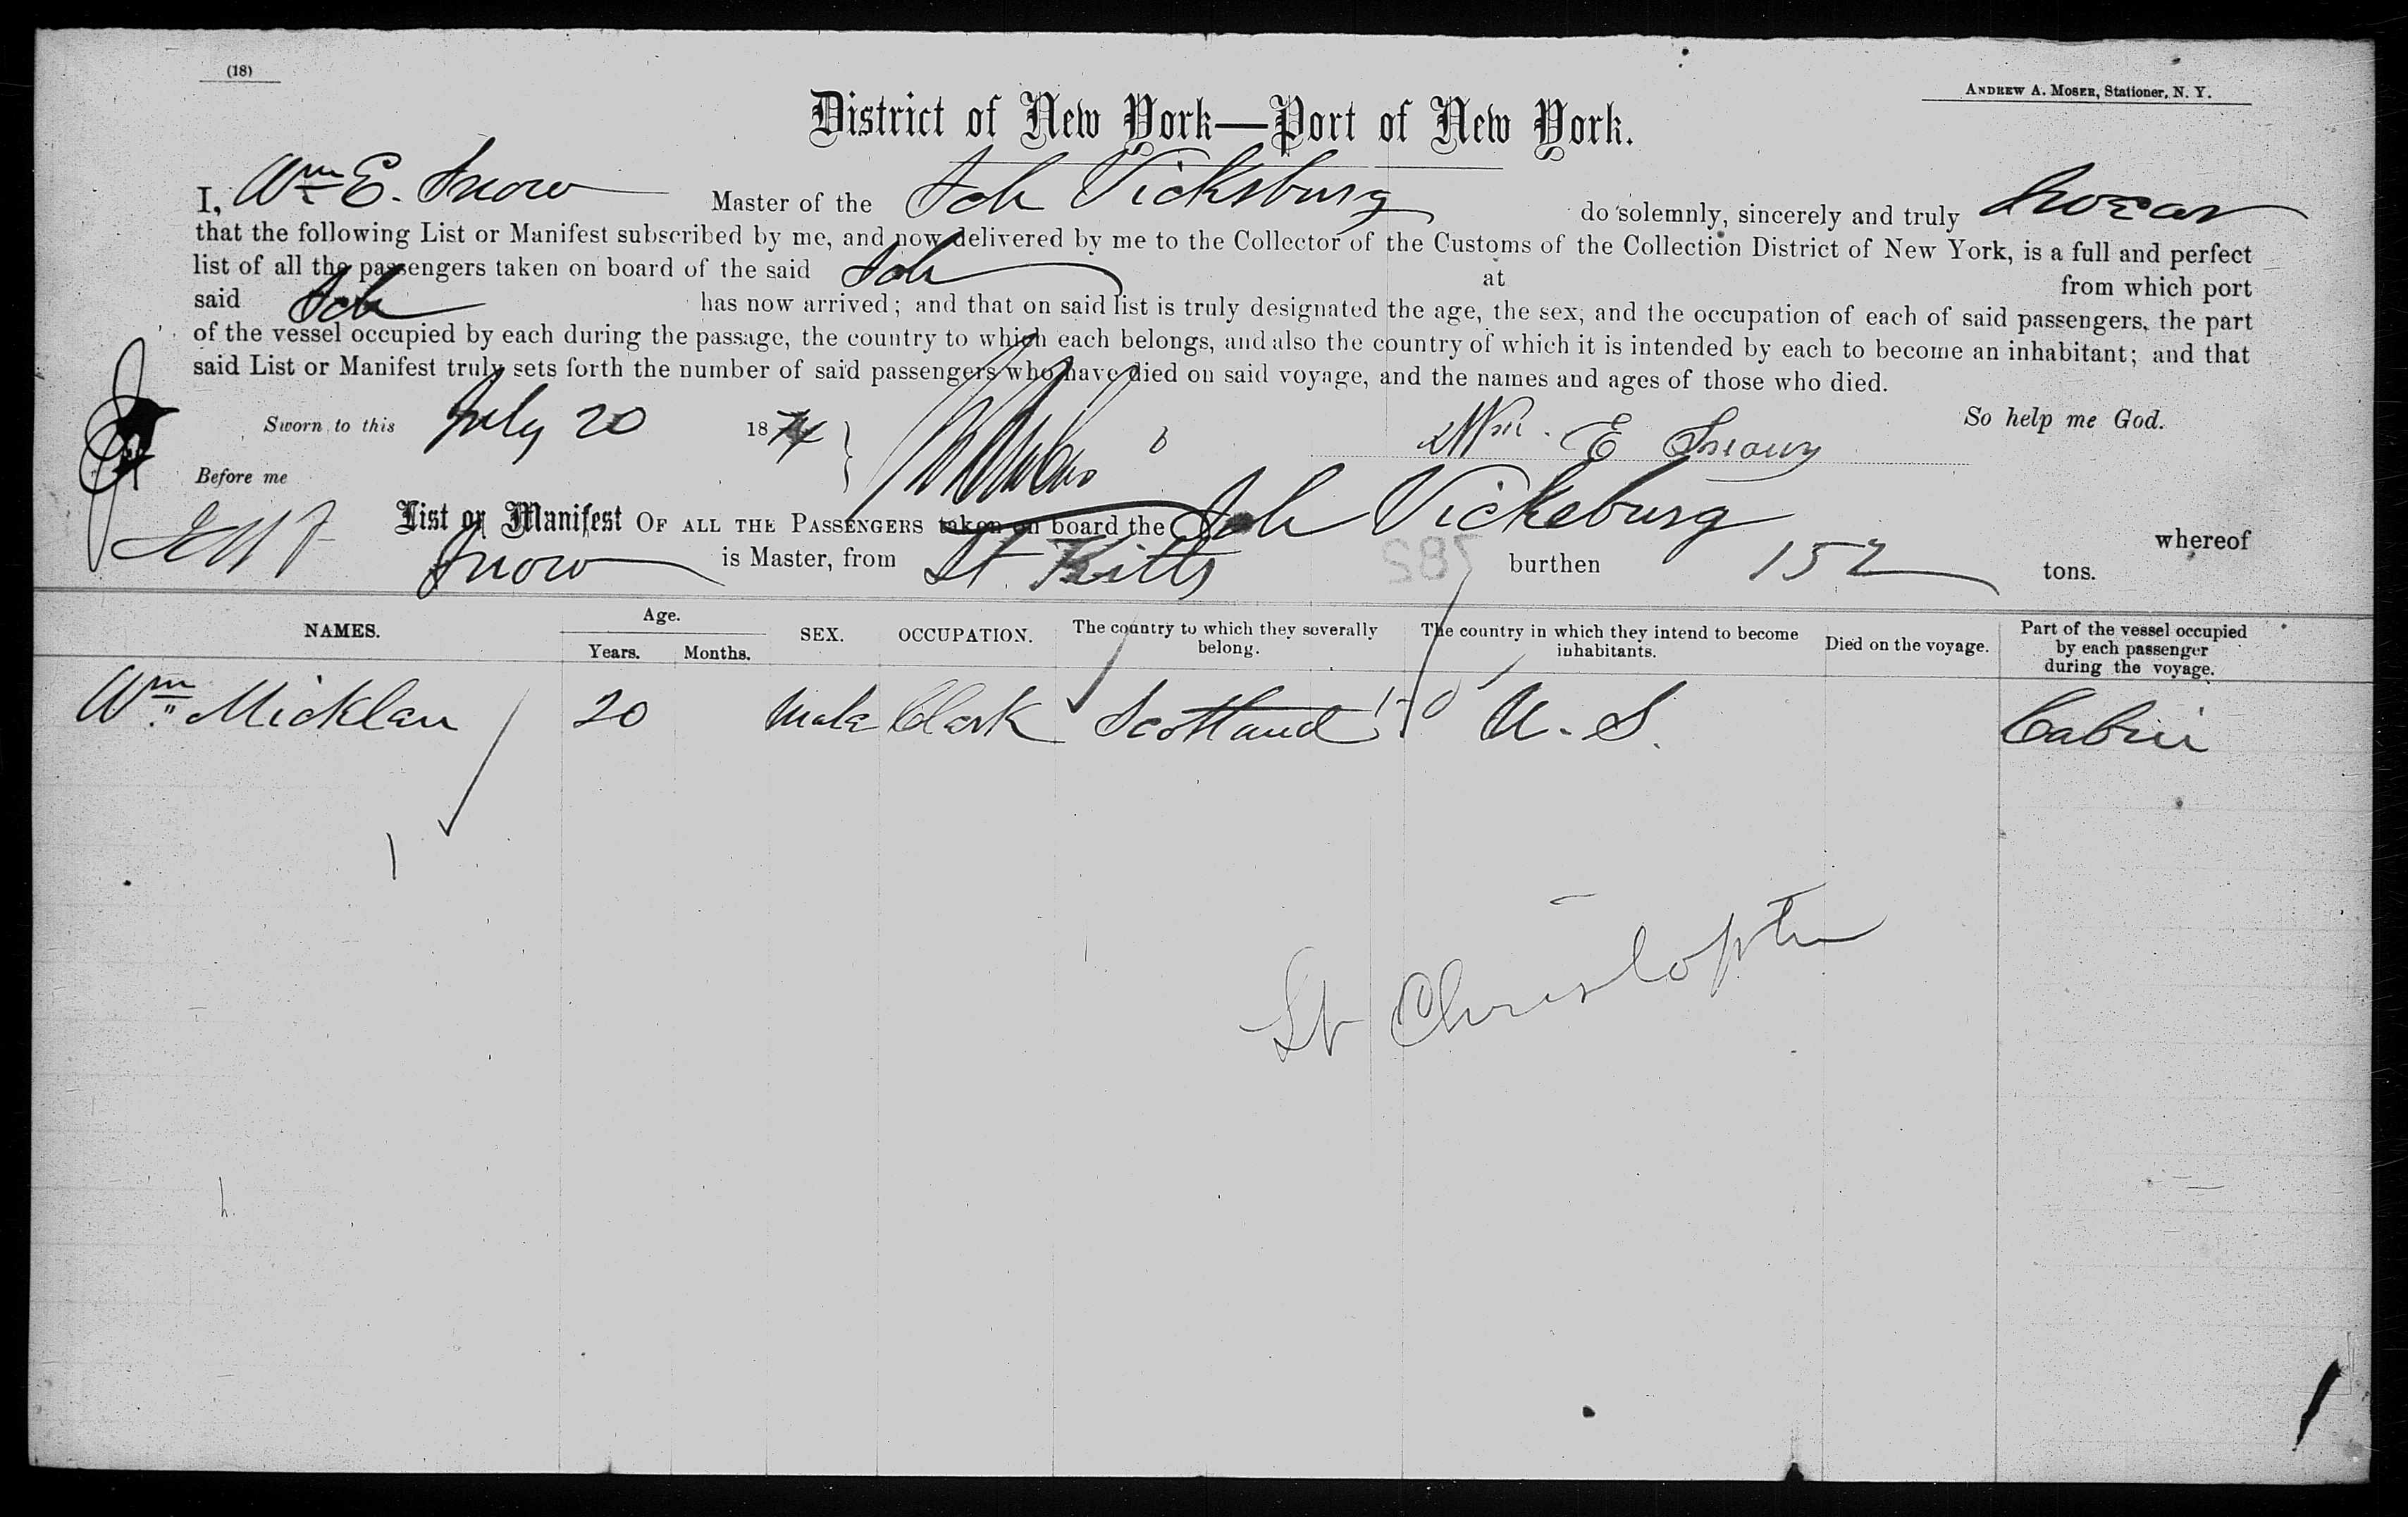 (18)
ANDREW A. MOSER, Stationer, N. Y.
District of New York—Port of New York.
I, Wm E. Snow Master of the Sch Vicksburg do solemnly, sincerely and truly swear
that the following List or Manifest subscribed by me, and now delivered by me to the Collector of the Customs of the Collection District of New York, is a full and perfect
list of all the passengers taken on board of the said Sch at from which port
said Sch has now arrived; and that on said list is truly designated the age, the sex, and the occupation of each of said passengers, the part
of the vessel occupied by each during the passage, the country to which each belongs, and also the country of which it is intended by each to become an inhabitant; and that
said List or Manifest truly sets forth the number of said passengers who have died on said voyage, and the names and ages of those who died.
So help me God.
Sworn to this July 20 18 Wm. E Snow
Before me
List or Manifest OF ALL THE PASSENGERS taken on board the Sch Vicksburg whereof
Snow is Master, from St Kitts burthen 152 tons.
NAMES. Age. Years. Months. SEX. OCCUPATION. The country to which they severally belong. The country in which they intend to become inhabitants. Died on the voyage. Part of the vessel occupied by each passenger during the voyage.
Wm Micklan 20 Male Clerk Scotland U. S. Cabin
1
St Christopher